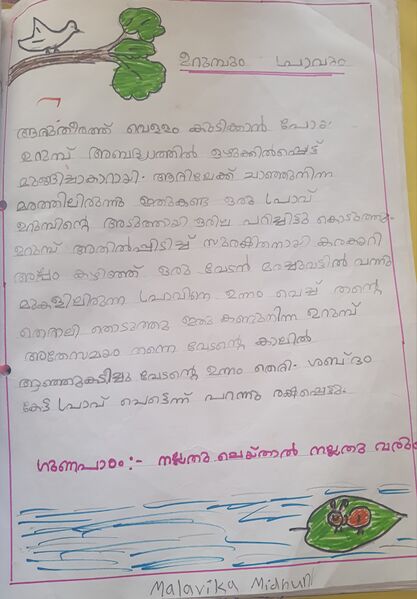 ഉറുമ്പും പ്രാവും
ആറ്റുതീരത്ത് വെള്ളം കുടിക്കാൻ പോയ
ഉറുമ്പ് അബദ്ധത്തിൽ ഒഴുക്കിൽപ്പെട്ട്
മുങ്ങിച്ചാകാറായി. ആറ്റിലേക്ക് ചാഞ്ഞുനിന്ന
മരത്തിലിരുന്ന ഇതുകണ്ട ഒരു പ്രാവ്
ഉറുമ്പിന്റെ അടുത്തായി ഒരില പറിച്ചിട്ടു കൊടുത്തു.
ഉറുമ്പ് അതിൽപിടിച്ച് സുരക്ഷിതനായി കരകയറി
അല്പം കഴിഞ്ഞ് ഒരു വേടൻ മരച്ചുവട്ടിൽ വന്നു
മുകളിലിരുന്ന പ്രാവിനെ ഉന്നം വെച്ച് തന്റെ
തൊടുത്തു ഇതു കണ്ടുനിന്ന ഉറുമ്പ്
അതേസമയം തന്നെ വേടന്റെ കാലിൽ
ആഞ്ഞുകടിച്ചു വേടന്റെ ഉന്നം തെറ്റി. ശബ്ദം
കേട്ട് പ്രാവ് പെട്ടെന്ന് പറന്നു രക്ഷപ്പെട്ടു.
ഗുണപാഠം:- നല്ലതു ചെയ്താൽ നല്ലതു വരും
Malavika Midhun